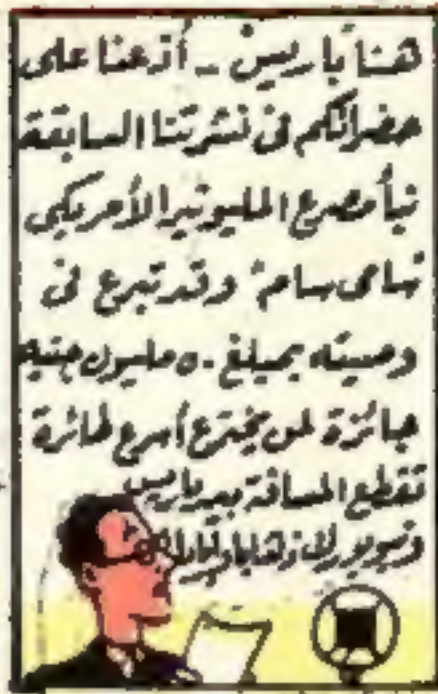 هنا باريس - أذعنا على
حضراتكم فى نشرتنا السابقة
نبأ مصرع المليونير الأمريكى
سام وقد تبرع فى
وصيته بمبلغ ٥٠ مليون جنيه
جائزة لمن يخترع أسرع طائرة
تقطع المسافة بين باريس
ونيويورك ذهابا وإيابا